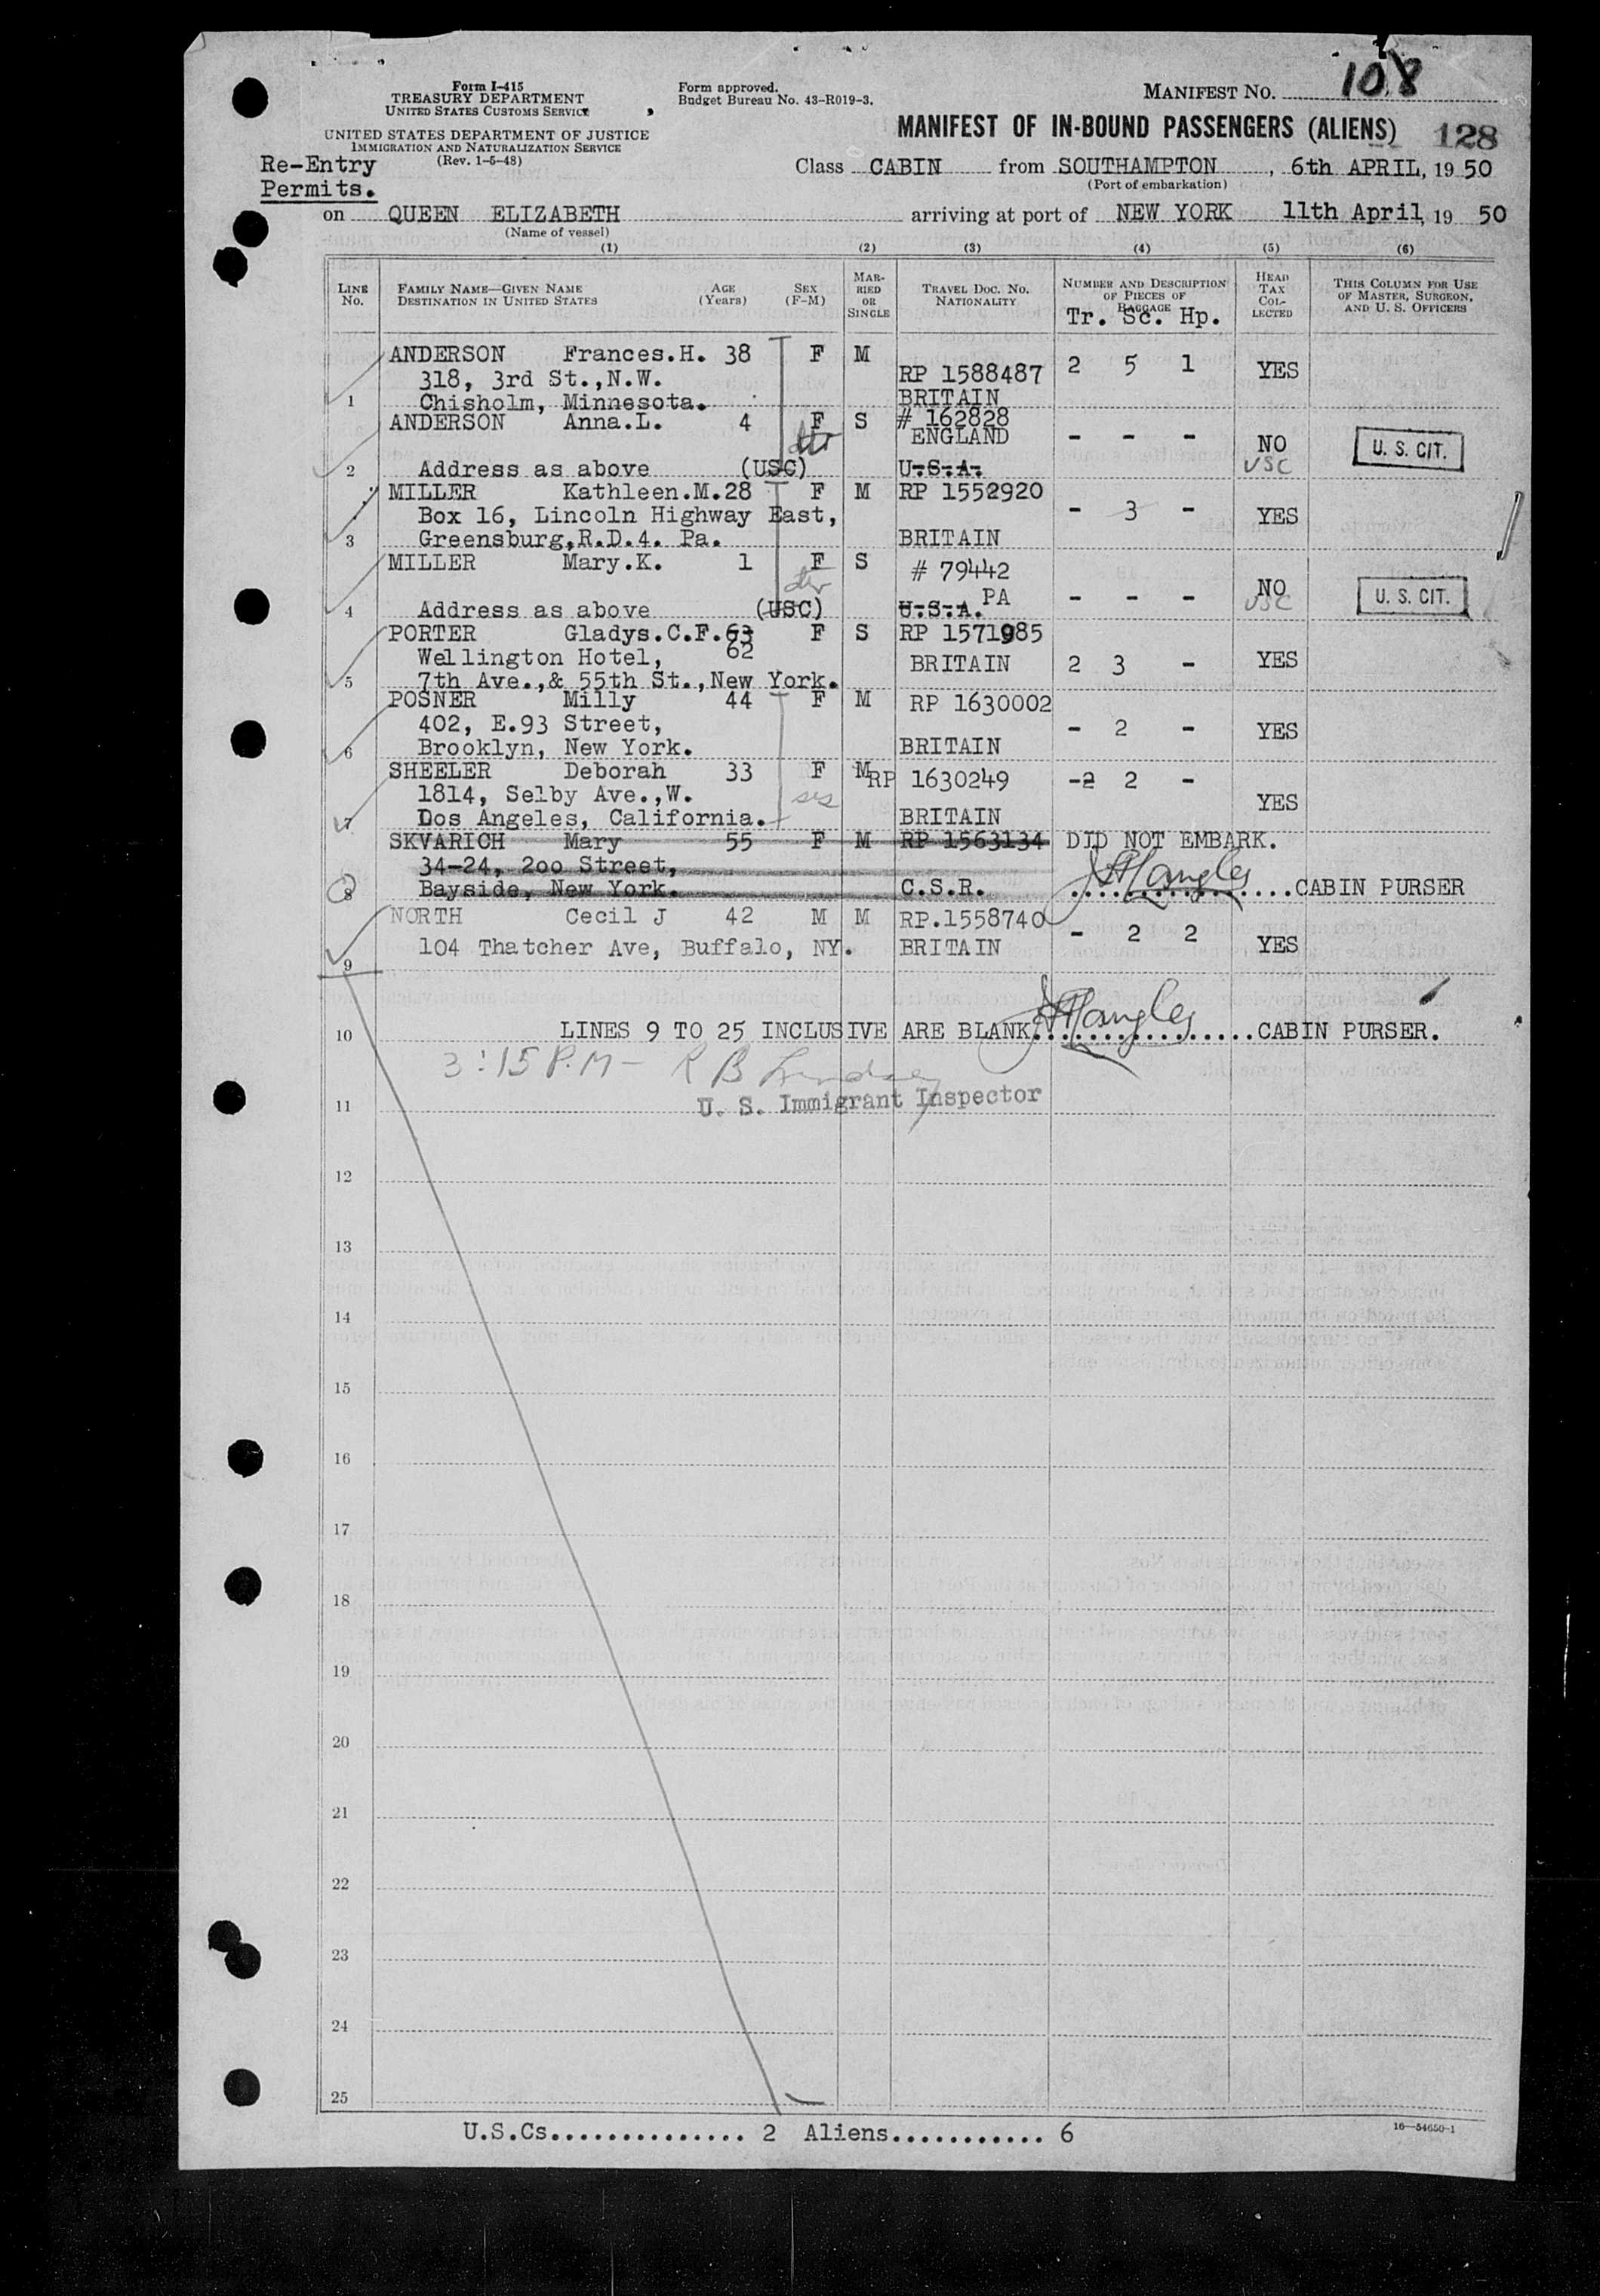 Form I-415
TREASURY DEPARTMENT
UNITED STATES CUSTOMS SERVICE
UNITED STATES DEPARTMENT OF JUSTICE
IMMIGRATION AND NATURALIZATION SERVICE
(Rev. 1-5-48)
Form approved.
Budget Bureau No. 43-R019-3.
MANIFEST No. 108
MANIFEST OF IN-BOUND PASSENGERS (ALIENS) 128
Re-Entry
Permits.
Class CABIN from SOUTHAMPTON, 6th APRIL, 1950
(Port of embarkation)
on QUEEN ELIZABETH arriving at port of NEW YORK 11th April, 19 50
(Name of vessel)
(1) (2) (3) (4) (5) (6)
LINE No. FAMILY NAME—GIVEN NAME DESTINATION IN UNITED STATES AGE (Years) SEX (F-M) MARRIED OR SINGLE TRAVEL DOC. NO. NATIONALITY NUMBER AND DESCRIPTION OF PIECES OF BAGGAGE HEAD TAX COLLECTED THIS COLUMN FOR USE OF MASTER, SURGEON, AND U. S. OFFICERS
Tr. Sc. Hp.
ANDERSON Frances.H. 38 F M
318, 3rd St.,N.W. RP 1588487 2 5 1 YES
1 Chisholm, Minnesota. BRITAIN
ANDERSON Anna.L. 4 F S # 162828
ENGLAND - - - NO U. S. CIT.
2 Address as above (USC) U.S.A. USC
MILLER Kathleen.M.28 F M RP 1552920
Box 16, Lincoln Highway East, - 3 - YES
3 Greensburg,R.D.4. Pa. BRITAIN
MILLER Mary.K. 1 F S # 79442
4 Address as above (USC) U.S.A. PA - - - NO USC U. S. CIT.
PORTER Gladys.C.F.63 F S RP 1571985
Wellington Hotel, 62 BRITAIN 2 3 - YES
5 7th Ave.,& 55th St.,New York.
POSNER Milly 44 F M RP 1630002
402, E.93 Street, - 2 - YES
6 Brooklyn, New York. BRITAIN
SHEELER Deborah 33 F M RP 1630249 -2 2 -
1814, Selby Ave.,W. YES
7 Dos Angeles, California. BRITAIN
SKVARICH Mary 55 F M RP 1563134 DID NOT EMBARK.
34-24, 2oo Street,
8 Bayside, New York. C.S.R. CABIN PURSER
NORTH Cecil J 42 M M RP.1558740 - 2 2
9 104 Thatcher Ave, Buffalo, NY. BRITAIN YES
10 LINES 9 TO 25 INCLUSIVE ARE BLANK. CABIN PURSER.
3:15 P.M - R B
11 U. S. Immigrant Inspector
12
13
14
15
16
17
18
19
20
21
22
23
24
25
U.S.Cs............... 2 Aliens............ 6
16—54650-1